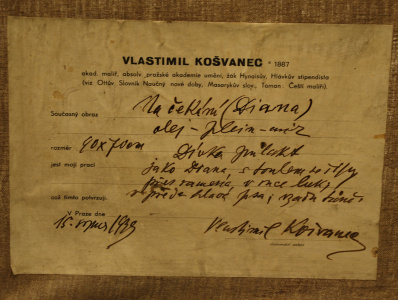 VLASTIMIL KOŠVANEC * 1887
akad. malíř, absolv. pražské akademie umění, žák Hynaisův, Hlávkův stipendista
(viz Ottův Slovník Naučný nové doby, Masarykův slov., Toman: Čeští malíři).
Současný obraz Na čekání (Diana)
olej - plein-air
rozměr 90x70cm Dívka
jest mojí prací jako Diana, s toulcem se šípy
přes rameno, v ruce luk,
což tímto potvrzuji. vpředu hlava psa, vzadu
V Praze dne
15. 1939 Vlastimil Košvanec